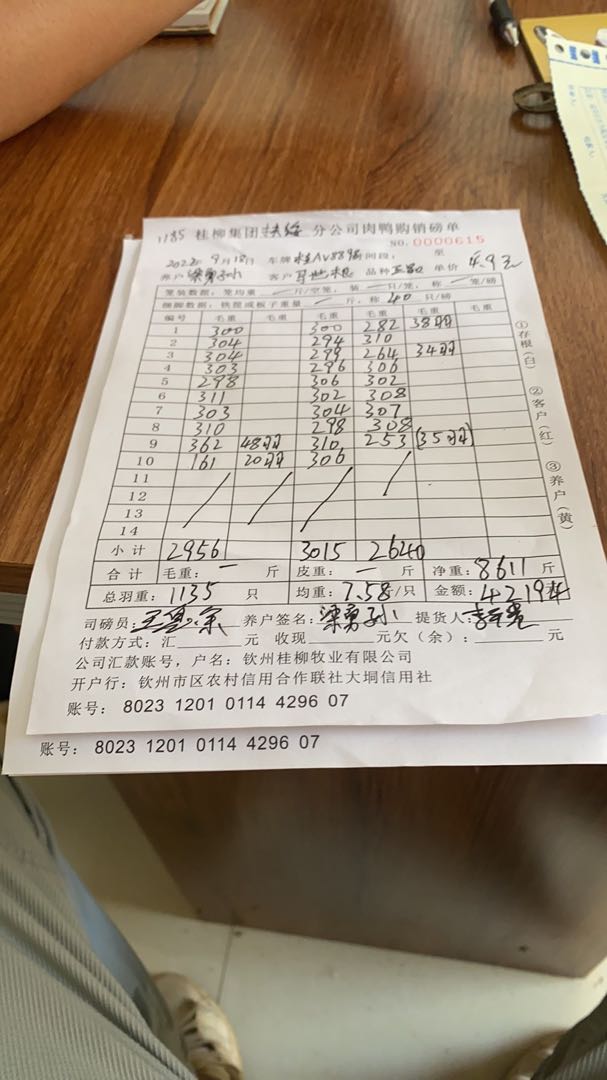 1185 桂柳集团扶绥分公司肉鸭购销磅单
NO.0000615
2022年9月18日 车牌 桂AV889 时间段： 至
养户 梁勇孙 客户 品种 单价 4.9元
笼装数据，笼均重 一 斤/空笼，装 一 只/笼，称 一 笼/磅
捆脚数据：铁提或板子重量 一 斤，称 40 只/磅
编号 毛重 毛重 毛重 毛重 毛重 毛重
1 300 300 282 38羽
2 304 294 310
3 304 299 264 34羽
4 303 296 306
5 298 306 302
6 311 302 308
7 303 304 307
8 310 298 308
9 362 48羽 310 253 (35羽)
10 161 20羽 306
11
12
13
14
小计 2956 3015 2640
合计 毛重：一 斤 皮重：一 斤 净重：8611 斤
总羽重：1135 只 均重：7.58/只 金额：42194
司磅员： 养户签名：梁勇孙 提货人：
付款方式：汇 元 收现 元欠（余）： 元
公司汇款账号，户名：钦州桂柳牧业有限公司
开户行：钦州市区农村信用合作联社大垌信用社
账号：8023 1201 0114 4296 07
账号：8023 1201 0114 4296 07
①存根（白） ②客户（红） ③养户（黄）